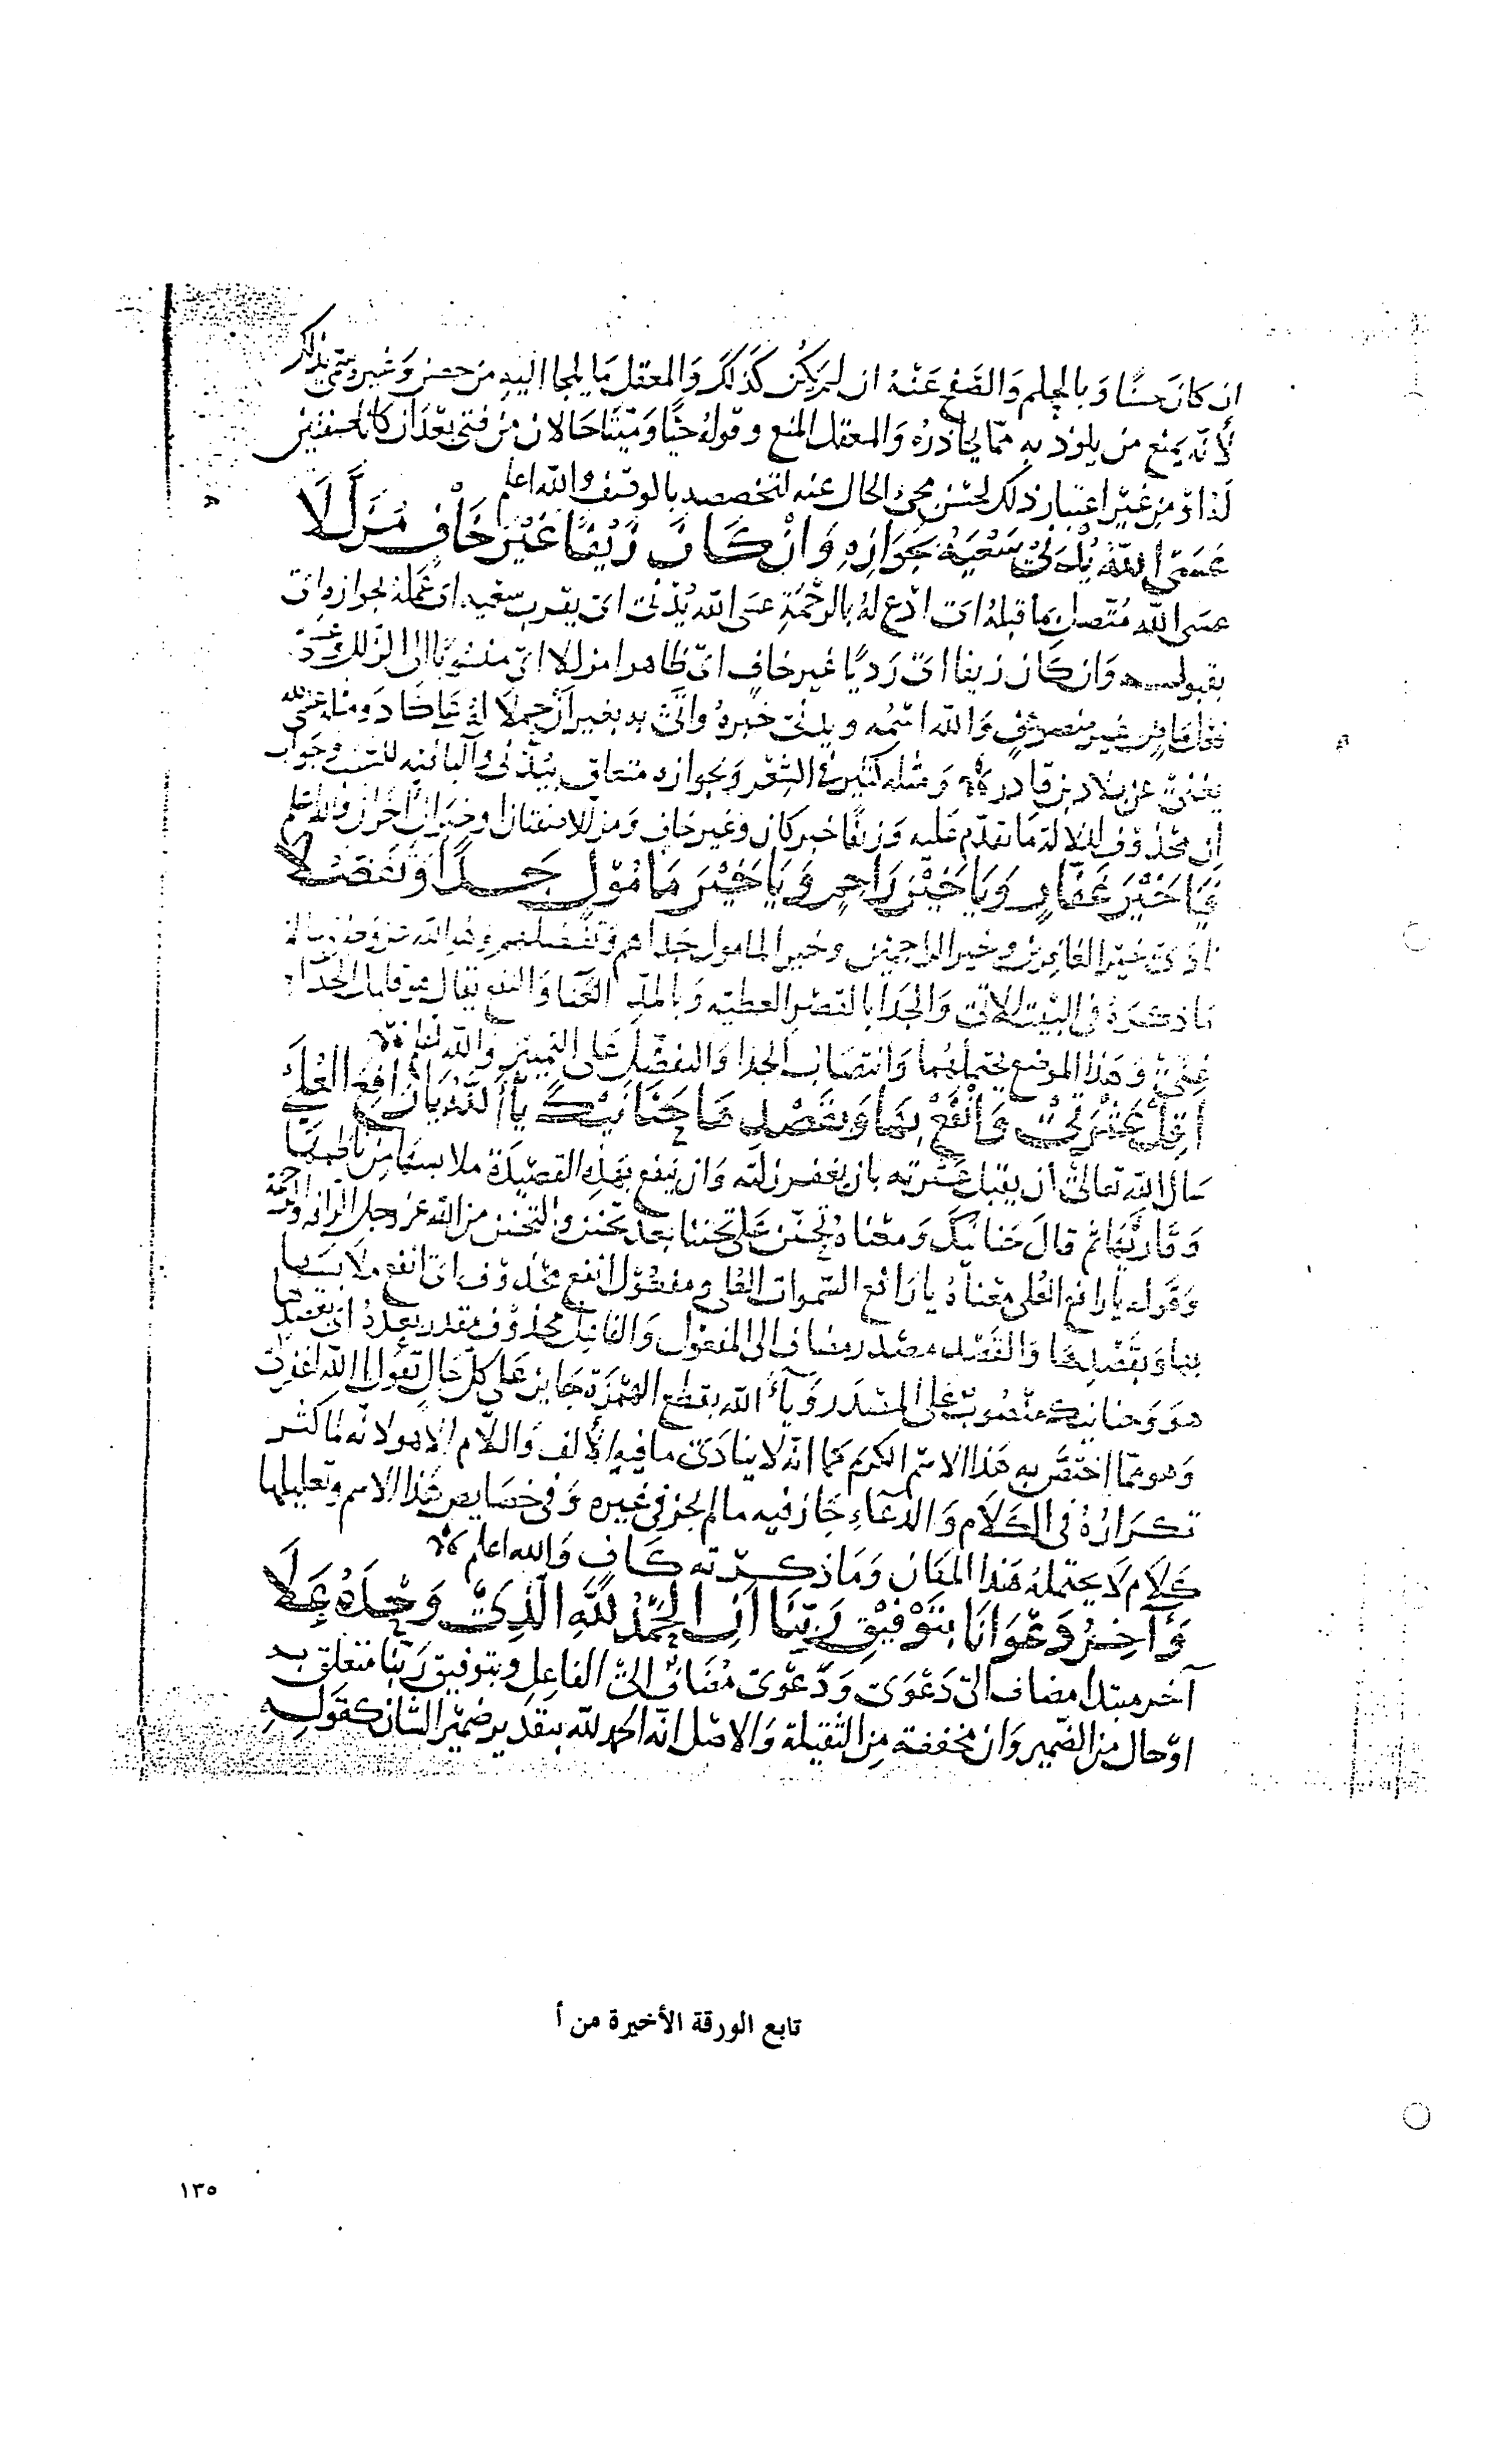 ان كان حسنا وبالحلم والصفح عنه ان لم يكن كذلك والمعقل ما يلجا اليه من حصن وغيره سمي بذلك
لأنه يمنع من يلوذ به مما يحاذره والمعقل المنع وقوله حيا وميتا حالان من فتى بعد ان كانا صفتين
له او من غير اعتبار ذلك لحسن مجئ الحال عنه لتخصصه بالوصف والله اعلم
عَسَى اللهُ يُدْنِي سَعْيَهُ بِجَوَازِهِ وَانْ كَانَ زَيْفًا غَيْرَ خَافٍ مُزَلَّلَا
عسى الله متصل بما قبله اى ادع له بالرحمة عسى الله يدنى اى يقرب سعيه اى عمله بجوازه اى
بقبوله وان كان زيفا اى رديا غير خاف اى ظاهرا مزللا اى منسوبا الى الزلل وعسى
فعل غير متصرف والله اسمه ويدنى خبره واتى به بغير ان حملا له على كاد ومثله عسى الله
يغنى عن بلاد بن قادر ومثله كثير فى الشعر وبجوازه متعلق بيدنى والبا فيه للسبب وجواب
ان محذوف لدلالة ما تقدم عليه وزيفا خبر كان وغير خاف ومزللا صفتان او خبران اخران والله اعلم
فَيَا خَيْرَ غَفَّارٍ وَيَا خَيْرَ رَاحِمٍ وَيَا خَيْرَ مَامُولٍ جَدًا وَتَفَضُّلَا
نادى خير الغافرين وخير الراحمين وخير المامول جداهم وتفضلهم وهو الله عز وجل وساله
ما ذكره فى البيت الاتى والجدا بالقصر العطيه وبالمد الغنا والنفع يقال هو قليل الجدا
عنى وهذا الموضع يحتملهما وانتصاب الجدا والتفضل على التمييز والله اعلم
أَقِلْ عَثْرَتِي وَانْفَعْ بِهَا وَبِقَصْدِهَا حَنَانَيْكَ يَا أَللَّهُ يَا رَافِعَ الْعُلَى
سال الله تعالى ان يقيل عثرته بان يغفر زلته وان ينفع بهذه القصيدة ملابسها من ناظمها
وقارئها ثم قال حنانيك ومعناه تحنن على تحننا بعد تحنن والتحنن من الله عز وجل الرافه والرحمة
وقوله يا رافع العلى معناه يا رافع السموات العلى ومفعول انفع محذوف اى انفع ملابسها
بها وبقصدها والقصد مصدر مضاف الى المفعول والفاعل محذوف مقدر بعده اى بقصدها
هو وحنانيك منصوب على المصدر ويا الله بقطع الهمزة جايز على كل حال تقول يا الله اغفر لى
وهو مما اختص به هذا الاسم الكريم كما انه لا ينادى ما فيه الألف واللام الا هو لانه لما كثر
تكراره فى الكلام والدعاء جاز فيه ما لم يجز فى غيره وفى خصايص هذا الاسم وتعليلها
كلام لا يحتمله هذا المكان وما ذكرته كاف والله اعلم
وَآخِرُ دَعْوَانَا بِتَوْفِيقِ رَبِّنَا أَنِ الْحَمْدُ لِلَّهِ الَّذِي وَحْدَهُ عَلَا
آخر مبتدا مضاف الى دعوى ودعوى مضاف الى الفاعل وبتوفيق ربنا متعلق به
او حال من الضمير وان مخففة من الثقيلة والاصل انه الحمد لله بتقدير ضمير الشان كقوله
تابع الورقة الأخيرة من أ
١٣٥